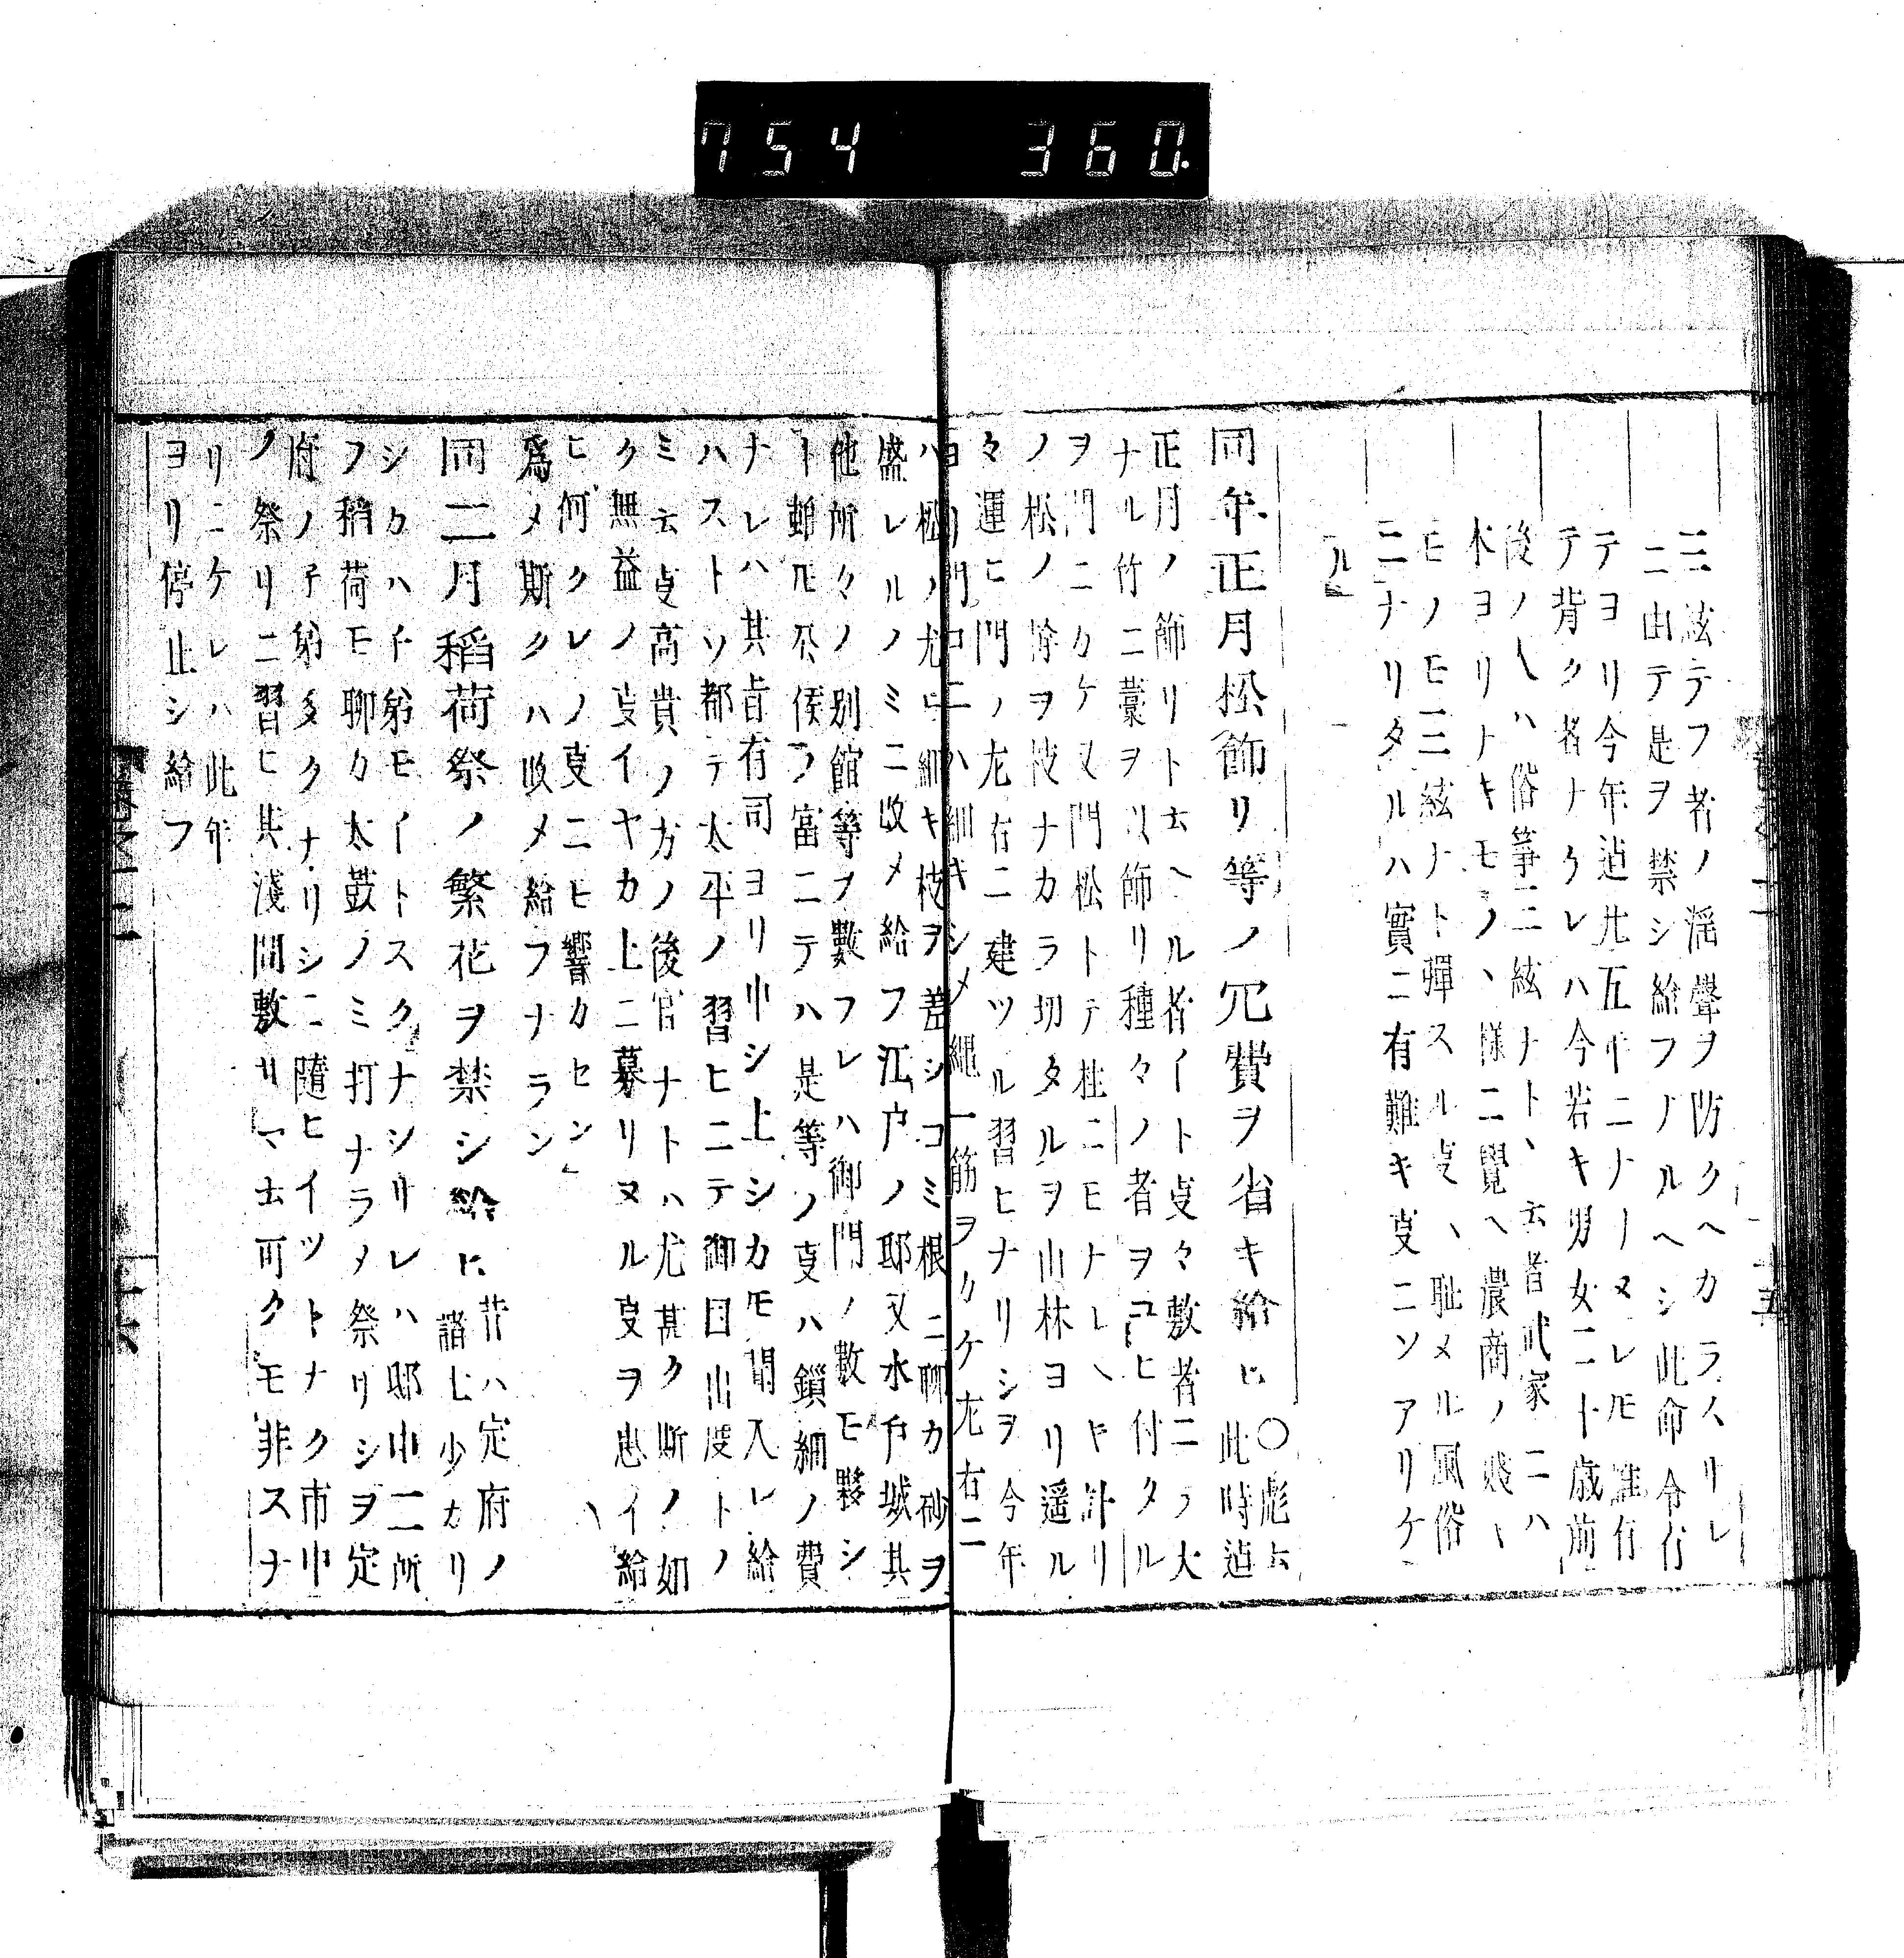 754 360.
三絃テフ者ノ滛聲ヲ防クヘカラスリレ
ニ由テ是ヲ禁シ給フナルヘシ此命令行
テヨリ今年迠凡五年ニナリヌレ𪜈誰有
テ背ク者ナクレハ今若キ男女二十歳前
後ノ人ハ俗箏三絃ナト丶云者武家ニハ
本ヨリナキモノ丶様ニ覺ヘ農商ノ賤丶
モノモ三絃ナト彈スル叓丶耻メル風俗
ニナリタルハ實ニ有難キ叓ニソアリケ
ル
同年正月松飾リ等ノ冗費ヲ省キ給ヒ
〇彪云
此時迠
正月ノ飾リト云ヘル者イト叓々敷者ニテ大
ナル竹ニ藁ヲ以飾リ種々ノ者ヲユヒ付タル
ヲ門ニカケ又門松トテ柱ニモナレヘキ計リ
ノ松ノ餘ヲ枝ナカラ切タルヲ山林ヨリ遥ル
々運ヒ門ノ左右ニ建ツル習ヒナリシヲ今年
ヨリ門口ニハ細キシメ縄一筋ヲカケ左右ニ
ハ松ノ尤モ細キ枝ヲ差シコミ根ニ聊カ砂ヲ
盛レルノミニ改メ給フ江戸ノ邸又水戸城其
他所々ノ別館等ヲ數フレハ御門ノ數モ夥シ
ト雖𪜈公侯ノ富ニテハ是等ノ叓ハ鎖細ノ費
ナレハ其旨有司ヨリ申シ上シカモ聞入レ給
ハストソ都テ太平ノ習ヒニテ御目出度トノ
ミ云叓高貴ノ方ノ後官ナトハ尤甚ク斯ノ如
ク無益ノ叓イヤカ上ニ募リヌル叓ヲ患イ給
ヒ何クレノ叓ニヒ響カセン
爲メ斯クハ改メ給フナラン
同二月稻荷祭ノ繁花ヲ禁シ給ヒ
昔ハ定府ノ
諸士少カリ
シカハ子弟モイトスクナシリレハ邸中二所
フ稻荷モ聊カ太鼓ノミ打ナラメ祭リシヲ定
府ノ子弟多クナリシニ隨ヒイツトナク市中
ノ祭リニ習ヒ其淺間敷サマ云可クモ非スナ
リニケレハ此年
ヨリ停止シ給フ